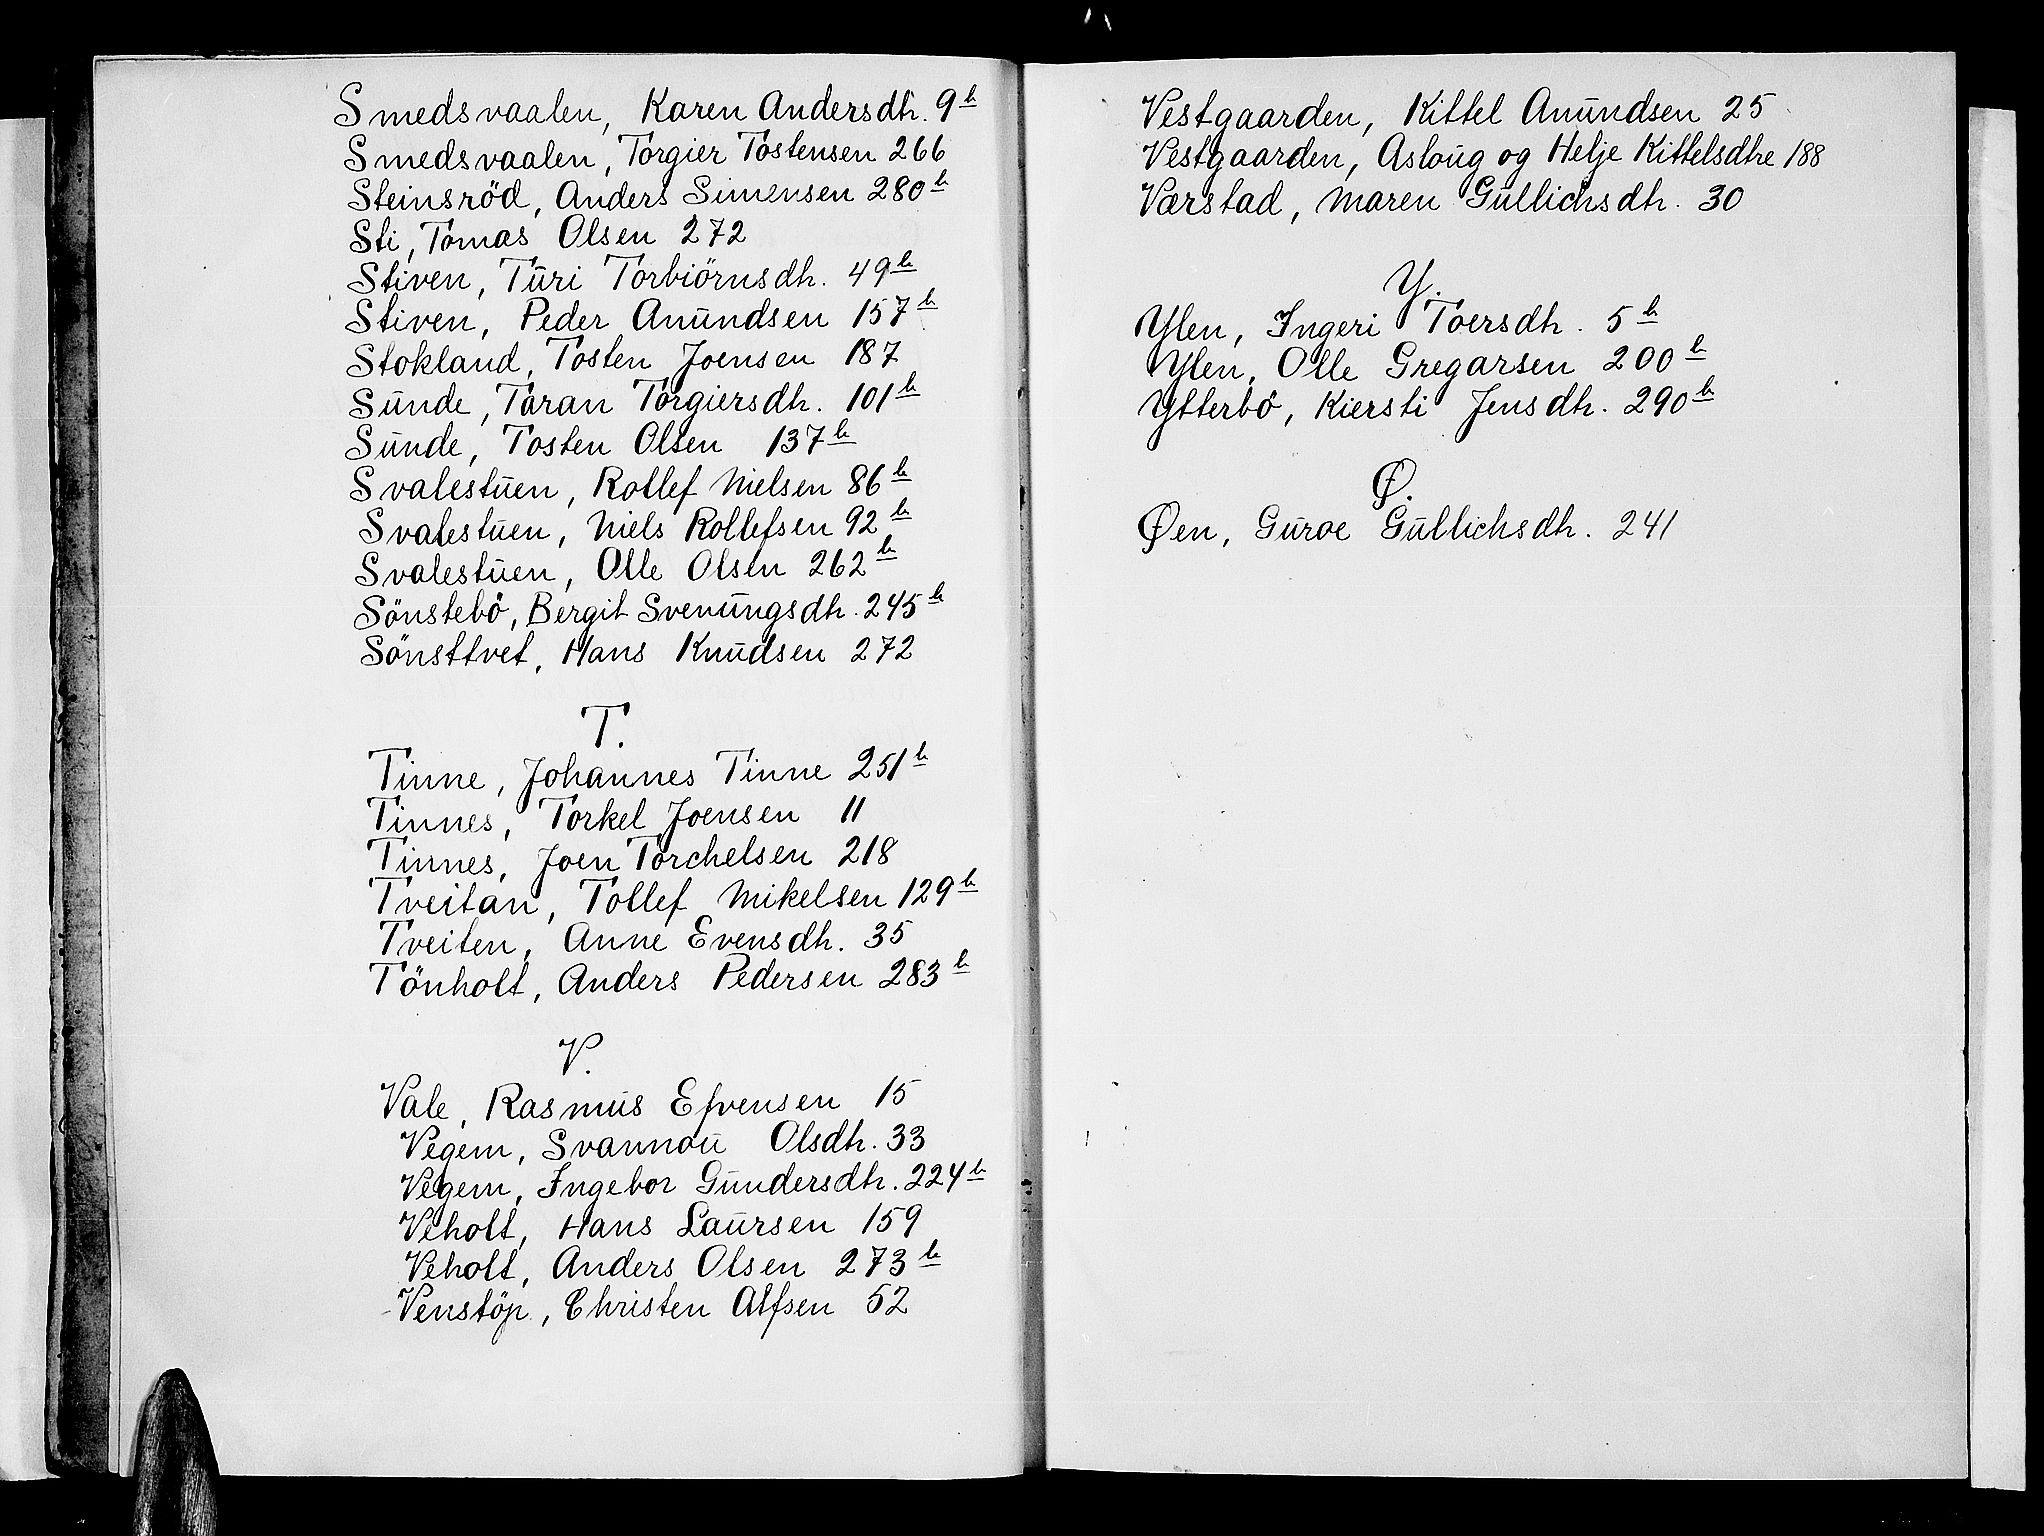 Smedsvaalen, Karen Andersdh. 9b
Smedsvaalen, Torgier Tostensen 266
Steinsröd, Anders Simensen 280b
Sti, Tomas Olsen 272
Stiven, Tūri Torbiörnsdh. 49b
Stiven, Peder Anūndsen 157b
Stokland, Tosten Joensen 187
Sūnde, Taran Torgiersdh. 101b
Sūnde, Tosten Olsen 137b
Svalestūen, Rollef Nielsen 86b
Svalestūen, Niels Rollefsen 92b
Svalestūen, Olle Olsen 262b
Sönstebö, Bergit Svenūngsdh. 245b
Sönsttvet, Hans Knūdsen 272
T.
Tinne, Johannes Tinne 251b
Tinnes, Torkel Joensen 11
Tinnes, Joen Torchelsen 218
Tveitan, Tollef Mikelsen 129b
Tveiten, Anne Evensdh. 35
Tönholt, Anders Pedersen 283b
V.
Vale, Rasmūs Efvensen 15
Vegem, Svannoū Olsdh. 33
Vegem, Ingebor Gūndersdh. 224b
Veholt, Hans Laūrsen 159
Veholt, Anders Olsen 273b
Venstöp, Christen Alfsen 52
Vestgaarden, Kittel Anūndsen 25
Vestgaarden, Asloūg og Helje Kittelsdtre 188
Værstad, Maren Gūllichsdh. 30
Y.
Ylen, Ingeri Toersdh. 5b
Ylen, Olle Gregarsen 200b
Ytterbö, Kiersti Jensdh. 290b
Ø.
Øen, Gūroe Gūllichsdh. 241